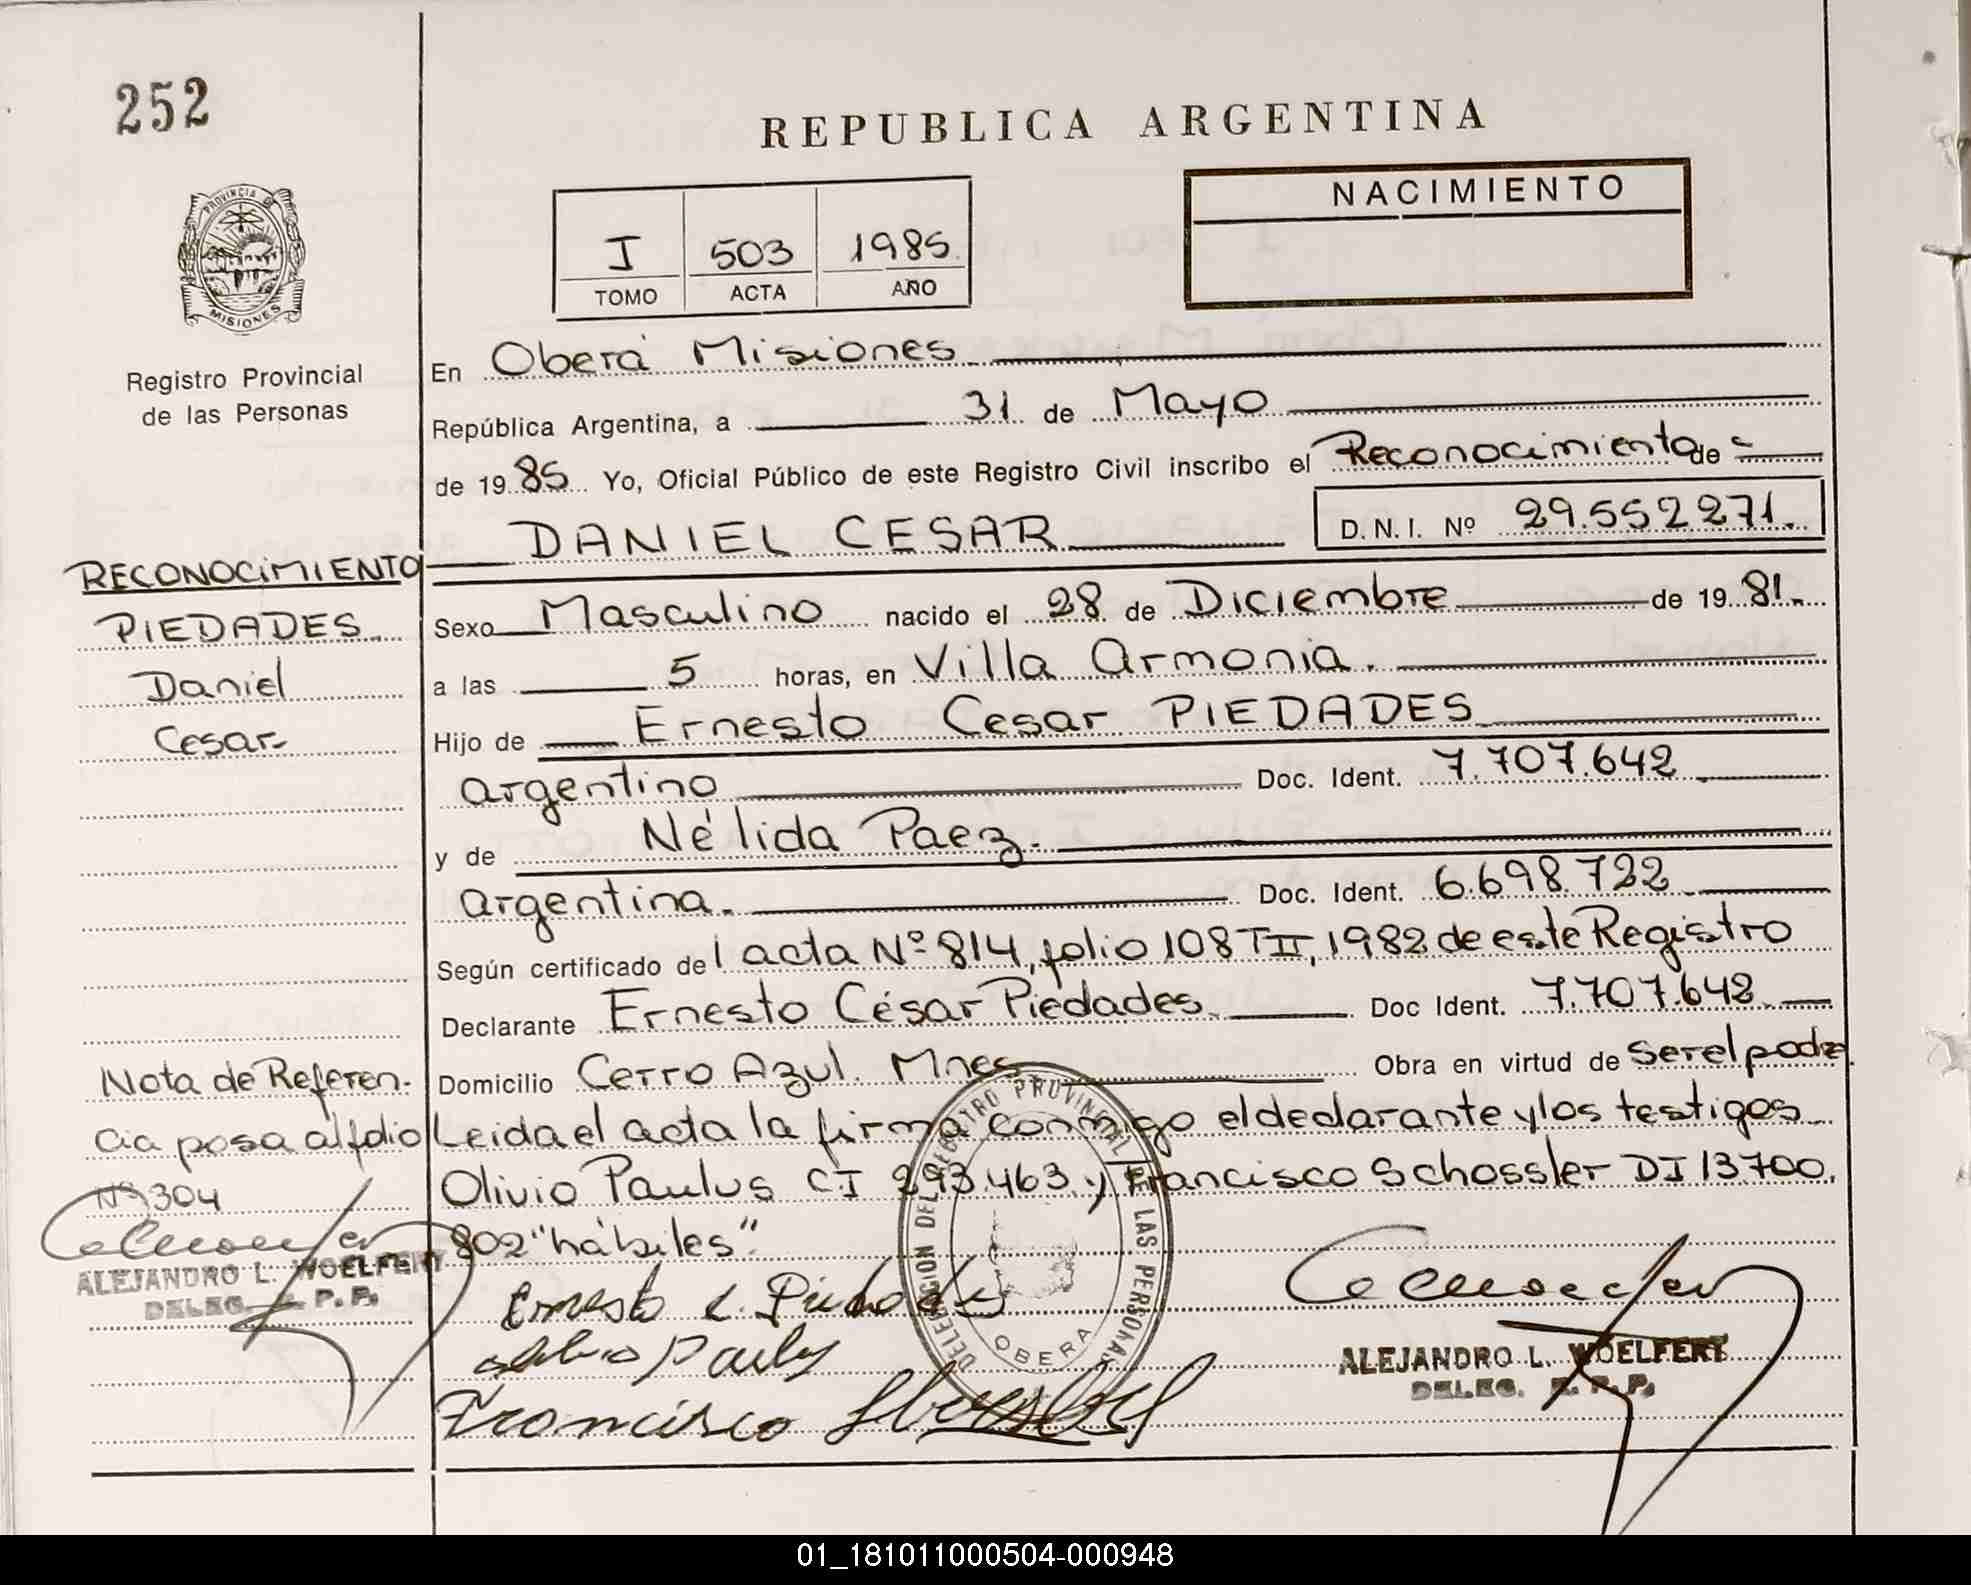 252
REPUBLICA ARGENTINA
NACIMIENTO
PROVINCIA DE
MISIONES
I 503 1985
TOMO ACTA AÑO
Registro Provincial
de las Personas
En Oberá Misiones
República Argentina, a 31 de Mayo
de 1985 Yo, Oficial Público de este Registro Civil inscribo el Reconocimiento de
DANIEL CESAR D.N.I. Nº 29.552271.
RECONOCIMIENTO
PIEDADES
Daniel
Cesar
Sexo Masculino nacido el 28 de Diciembre de 1981.
a las 5 horas, en Villa Armonia.
Hijo de Ernesto Cesar PIEDADES
argentino Doc. Ident. 7.707.642
y de Nélida Paez.
argentina. Doc. Ident. 6.698.722
Según certificado del acta Nº 814, folio 108 TII, 1982 de este Registro
Declarante Ernesto César Piedades Doc Ident. 7.707.642
Domicilio Cerro Azul. Mnes Obra en virtud de ser el padre.
Leida el acta la firma conmigo el declarante y los testigos
Olivio Paulus CI 293.463 y Francisco Schossler DI 13.700.
802 "hábiles".
Nota de Referen.
cia pasa al folio
Nº 304
ALEJANDRO L. WOELFERT
DELEG. R. P. P.
Ernesto C. Piedades
Olivio Paulus
Francisco
DELEGACION DEL REGISTRO PROVINCIAL DE LAS PERSONAS
OBERA
ALEJANDRO L. WOELFERT
DELEG. R. P. P.
01_181011000504-000948